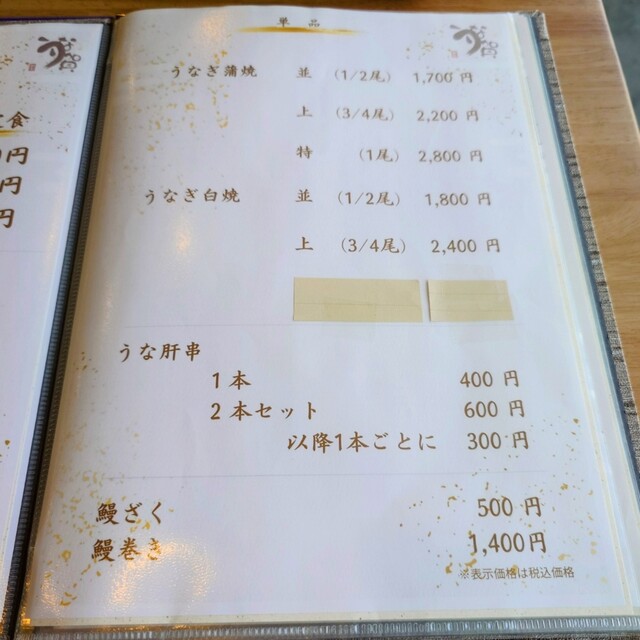 単品
うなぎ蒲焼 並 (1/2尾) 1,700 円
上 (3/4尾) 2,200 円
特 (1尾) 2,800 円
うなぎ白焼 並 (1/2尾) 1,800 円
上 (3/4尾) 2,400 円
うな肝串
1本 400 円
2本セット 600 円
以降1本ごとに 300 円
鰻ざく 500 円
鰻巻き 1,400円
※表示価格は税込価格
食
円
円
円